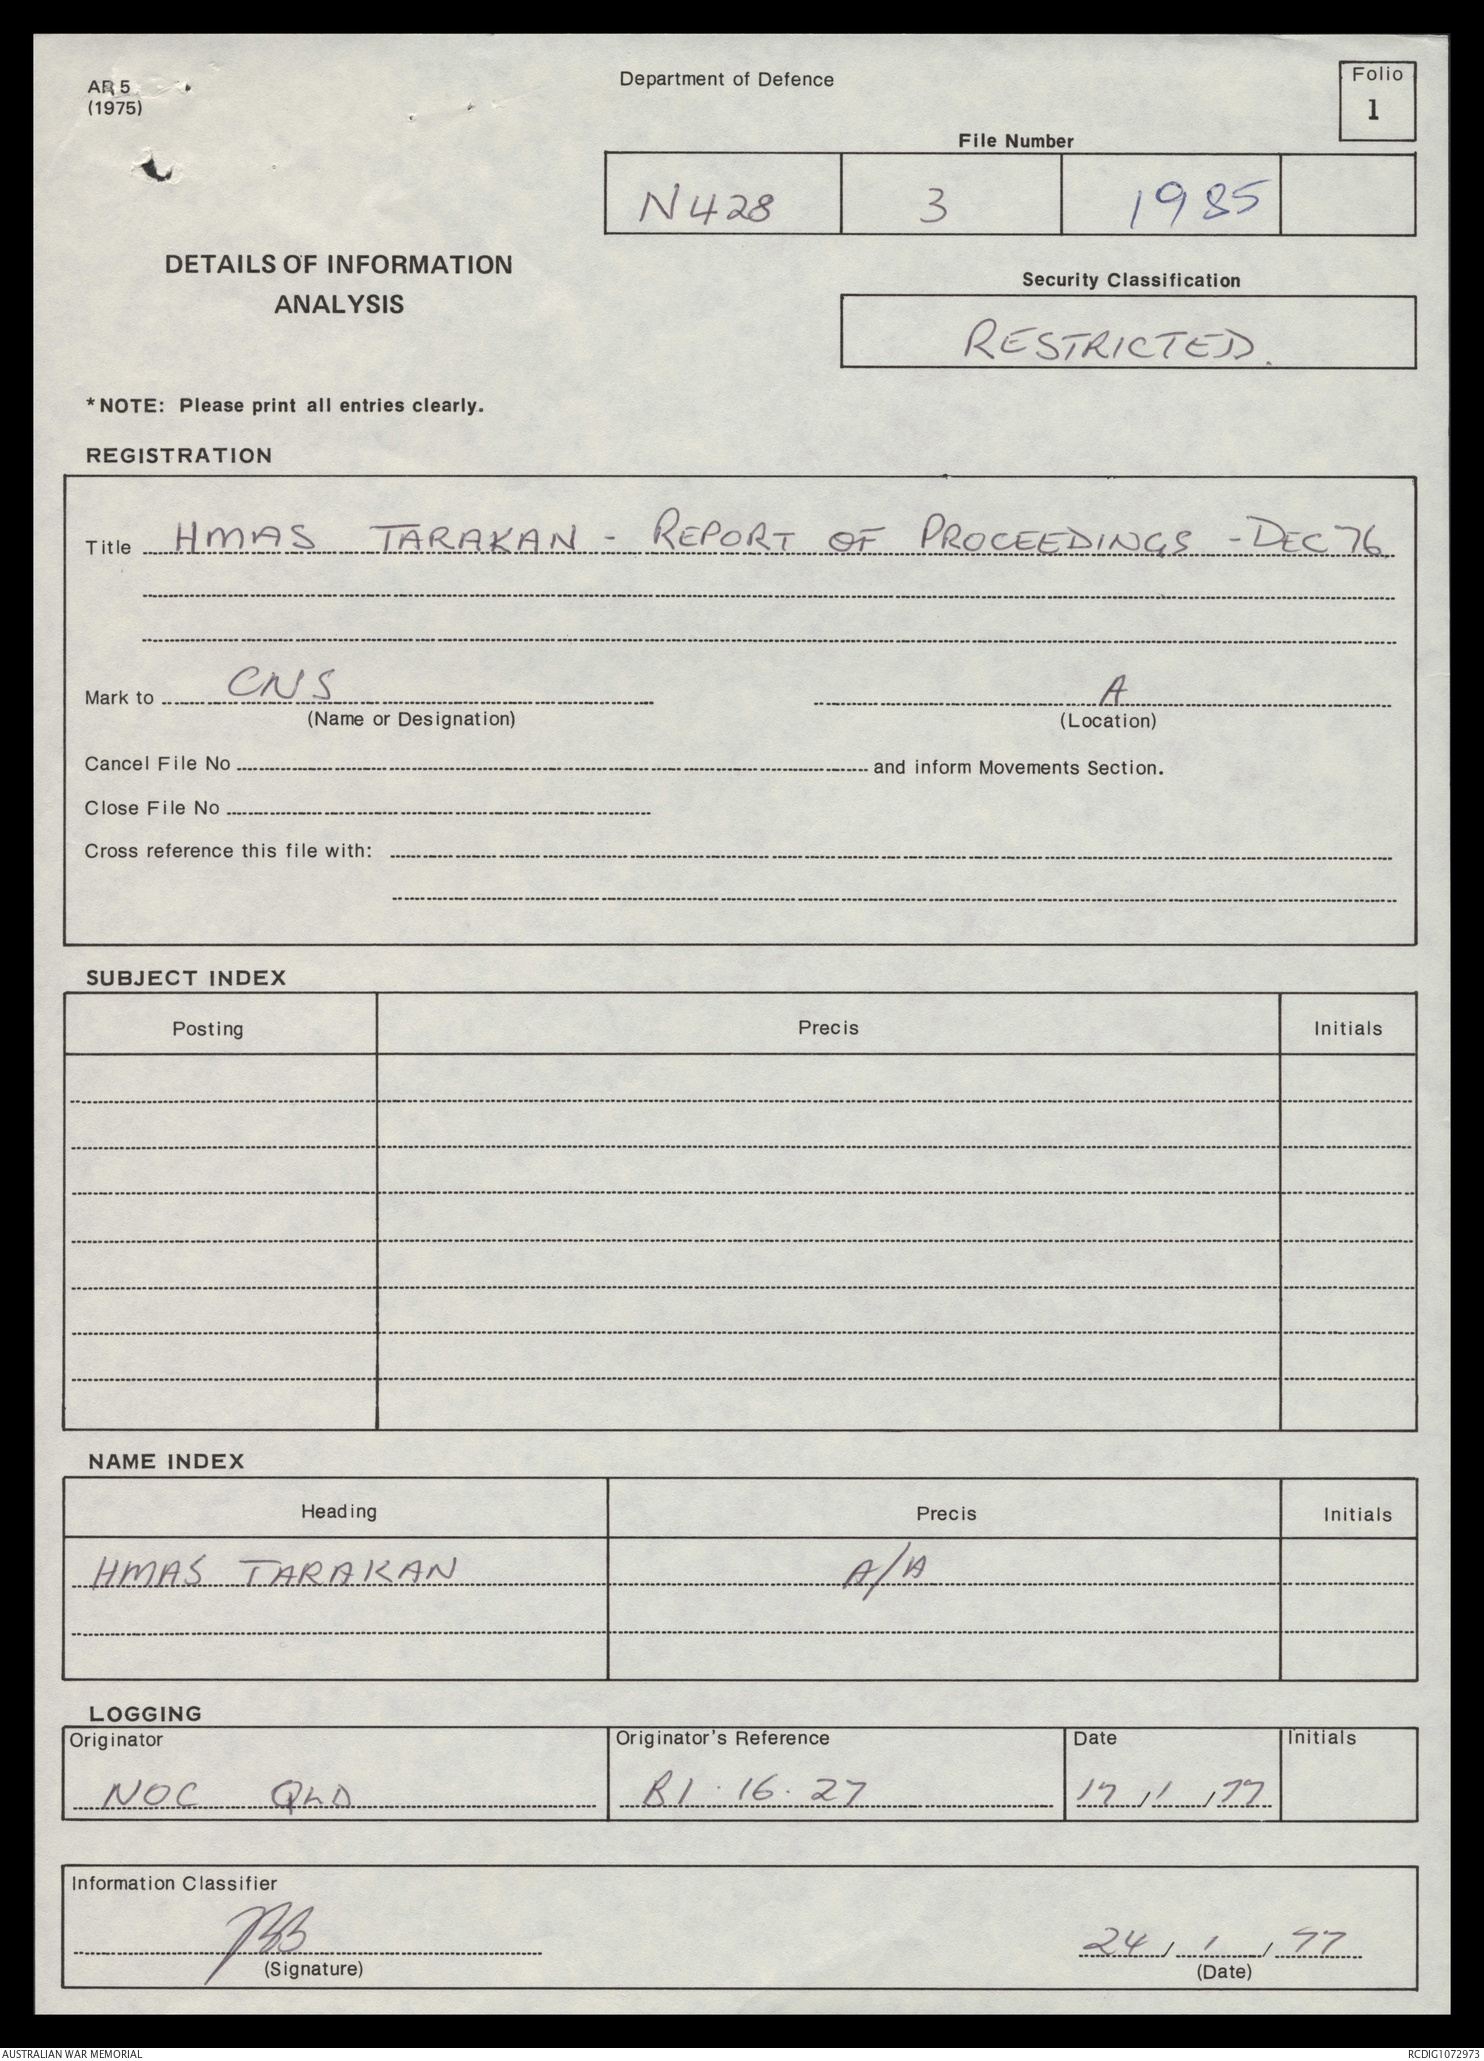 AR 5
(1975)
Department of Defence
Folio
1
File Number
N428 3 1985
DETAILS OF INFORMATION
ANALYSIS
Security Classification
RESTRICTED.
*NOTE: Please print all entries clearly.
REGISTRATION
Title HMAS TARAKAN - REPORT OF PROCEEDINGS - DEC 76
Mark to CNS A
(Name or Designation) (Location)
Cancel File No and inform Movements Section.
Close File No
Cross reference this file with:
SUBJECT INDEX
Posting Precis Initials
NAME INDEX
Heading Precis Initials
HMAS TARAKAN A/A
LOGGING
Originator Originator's Reference Date Initials
NOC QLD B1.16.27 17/1/77
Information Classifier
24/1/77
(Signature) (Date)
AUSTRALIAN WAR MEMORIAL RCDIG1072973